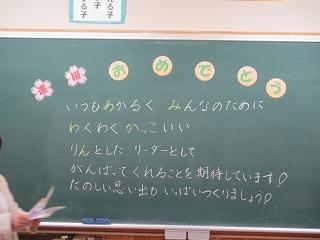 える子
る子
する子
進級おめでとう
いつもあかるく みんなのために
わくわく かっこいい
りんとした リーダーとして
がんばってくれることを期待しています!
たのしい思い出も いっぱいつくりましょう!